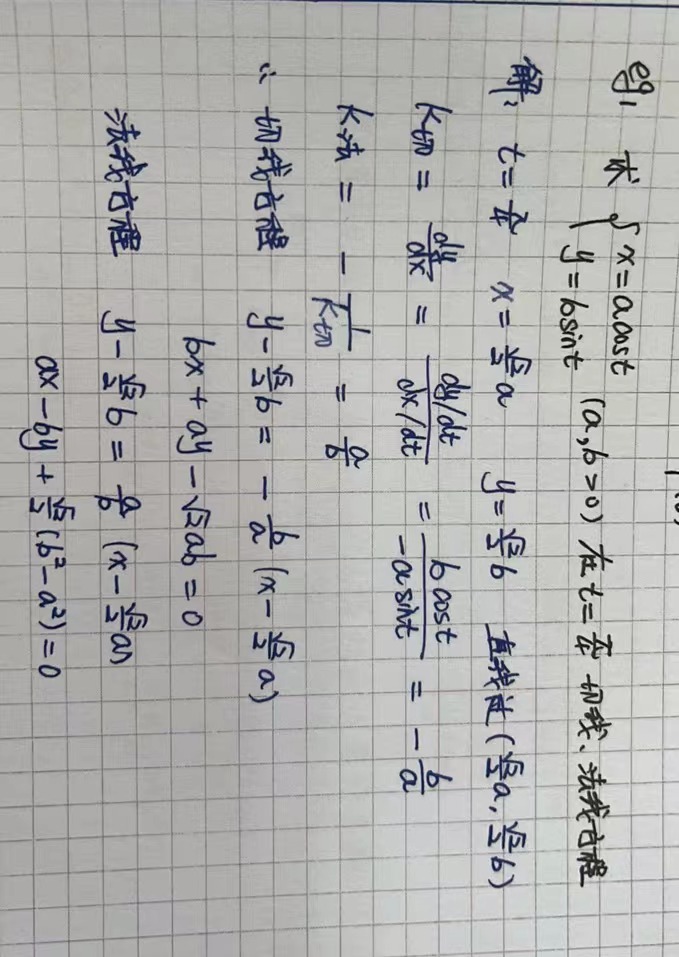 eg1 求 { x=acost
y=bsint (a,b>0) 在 t=π/4 切线、法线方程
解: t=π/4 x=√2/2 a y=√2/2 b 直线过(√2/2 a, √2/2 b)
k切 = dy/dx = (dy/dt)/(dx/dt) = bcost/(-asint) = -b/a
k法 = -1/k切 = a/b
∴ 切线方程 y-√2/2 b = -b/a (x-√2/2 a)
bx+ay-√2ab=0
法线方程 y-√2/2 b = a/b (x-√2/2 a)
ax-by+√2/2(b²-a²)=0